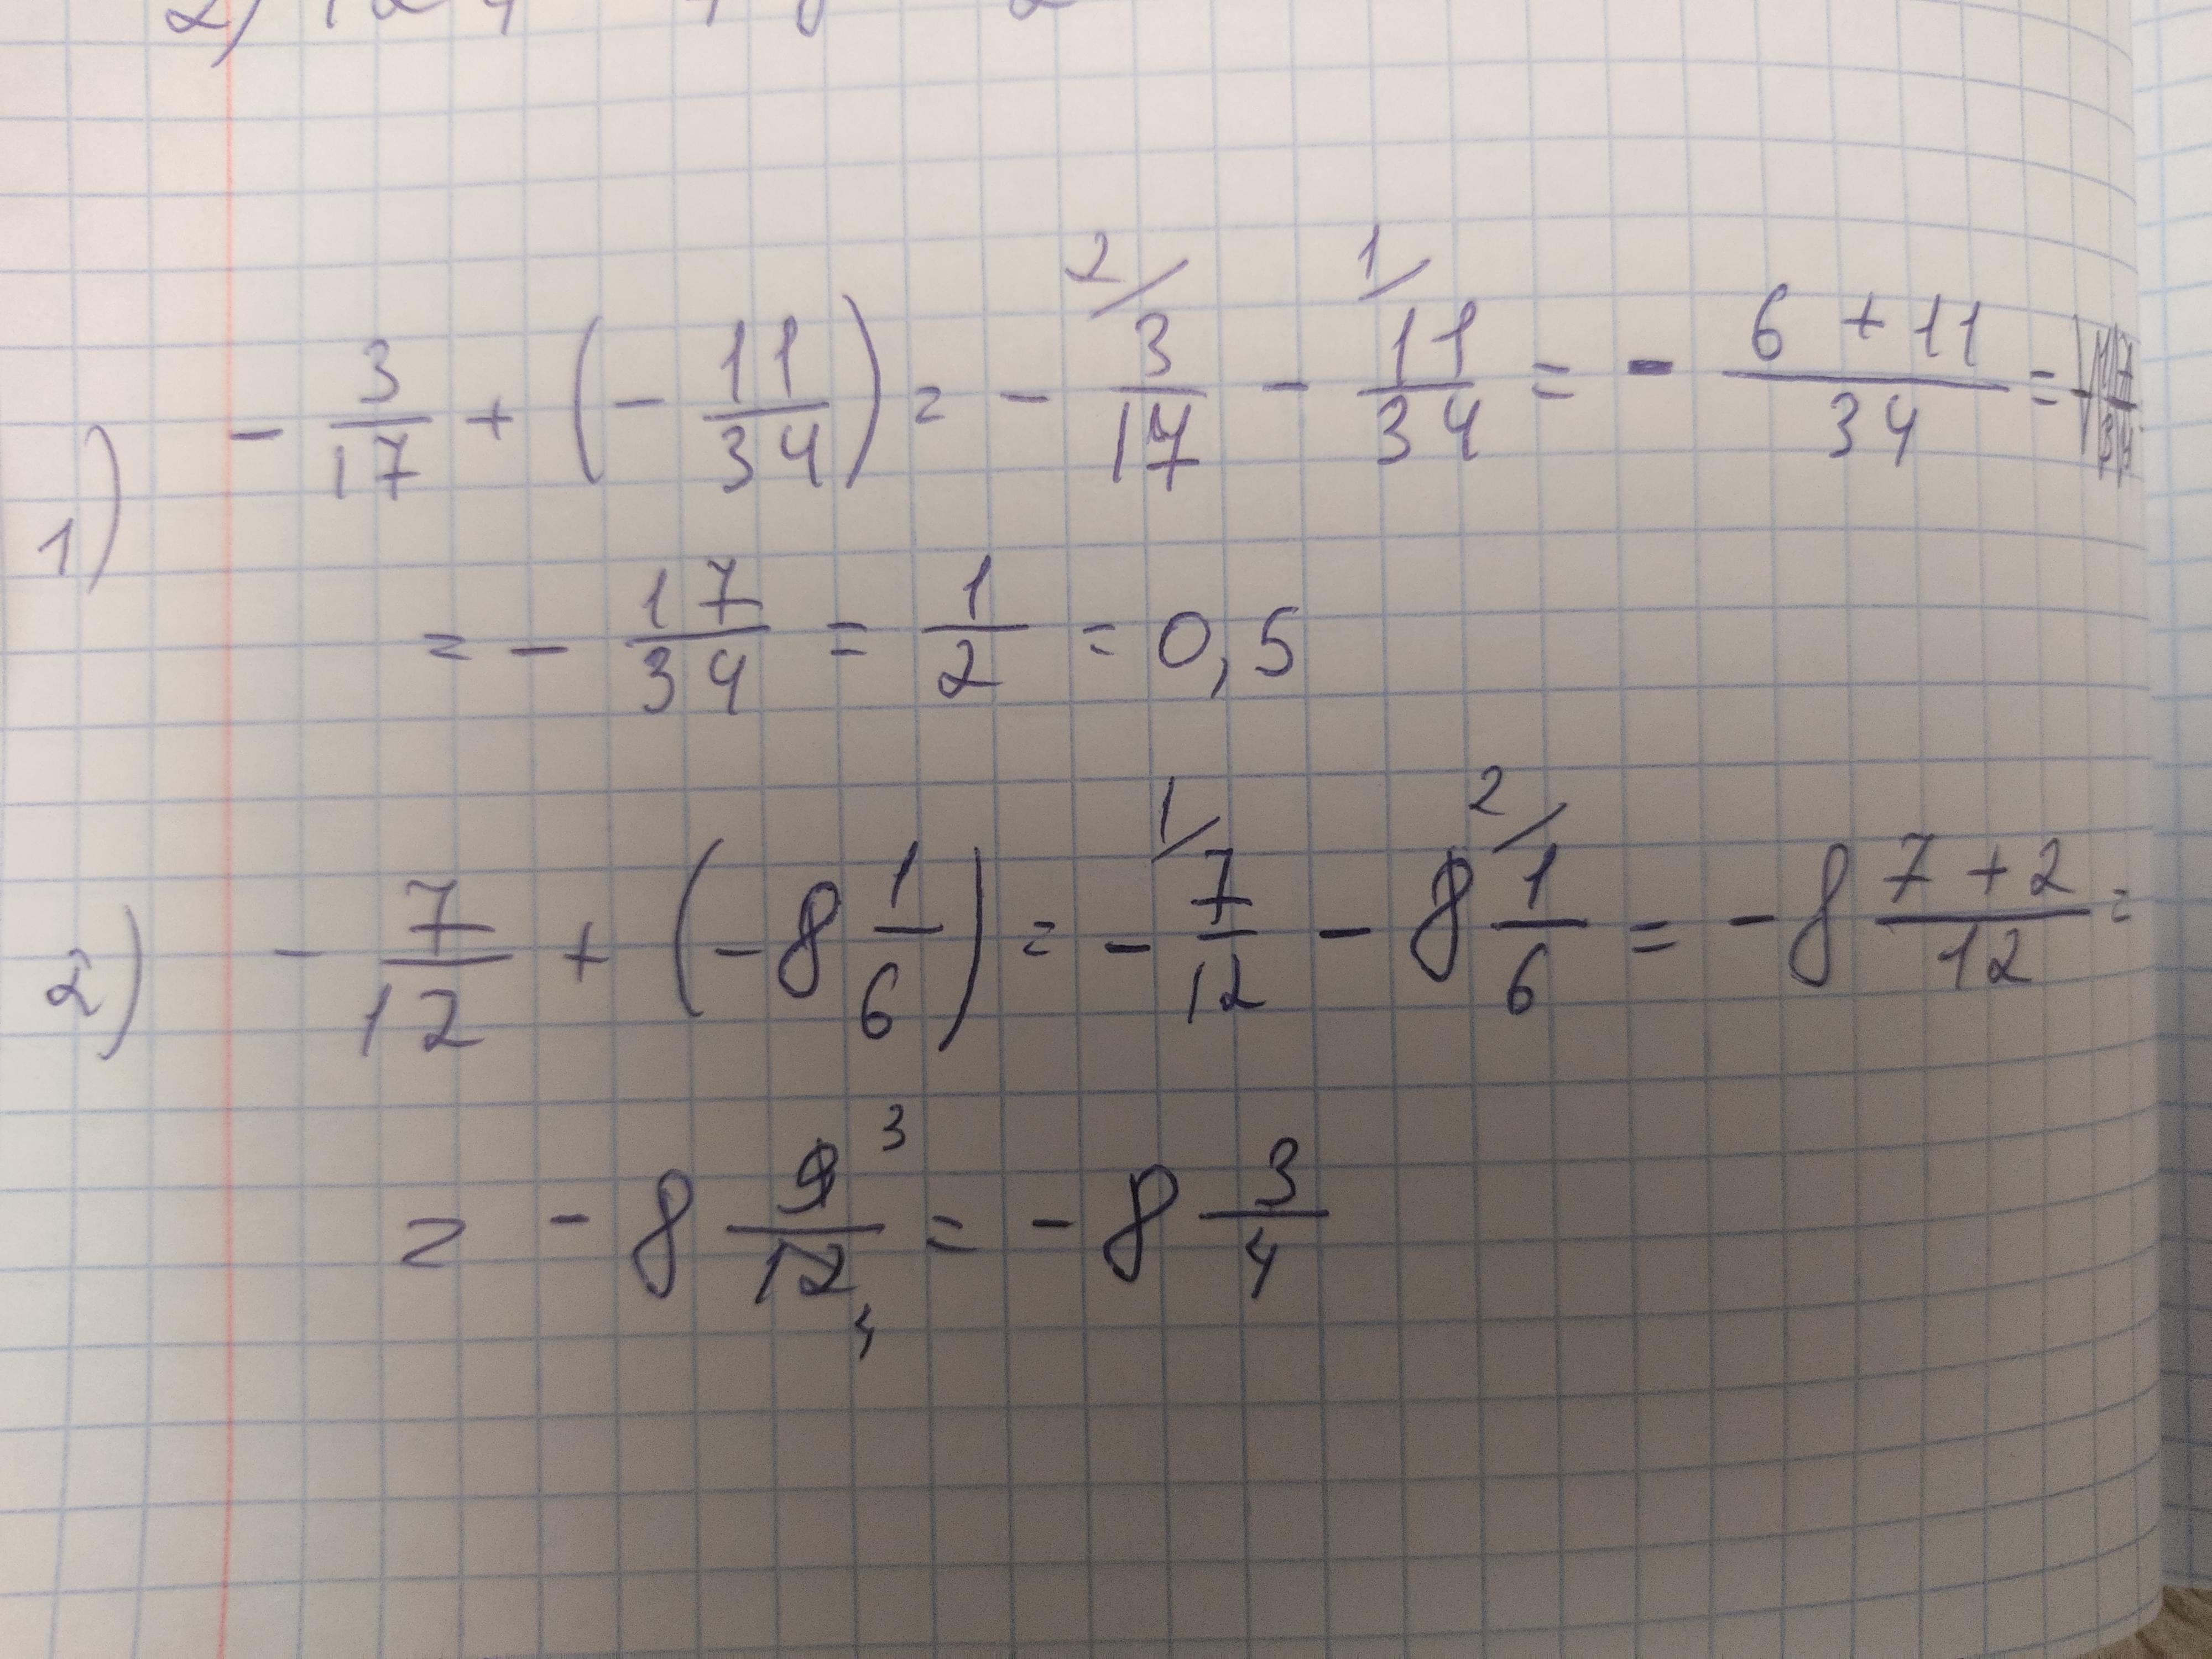 1) - 3/17 + (- 11/34) = - 2/ 3/17 - 1/ 11/34 = - (6 + 11)/34 =
= - 17/34 = 1/2 = 0,5
2) - 7/12 + (-8 1/6) = - 1/ 7/12 - 8 2/ 1/6 = -8 (7 + 2)/12 =
= -8 9 3/12 4 = -8 3/4